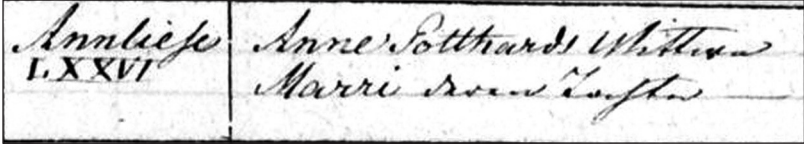 Annliese
LXXVI
Anne Potthards Wittwe
Marri deren Tochter